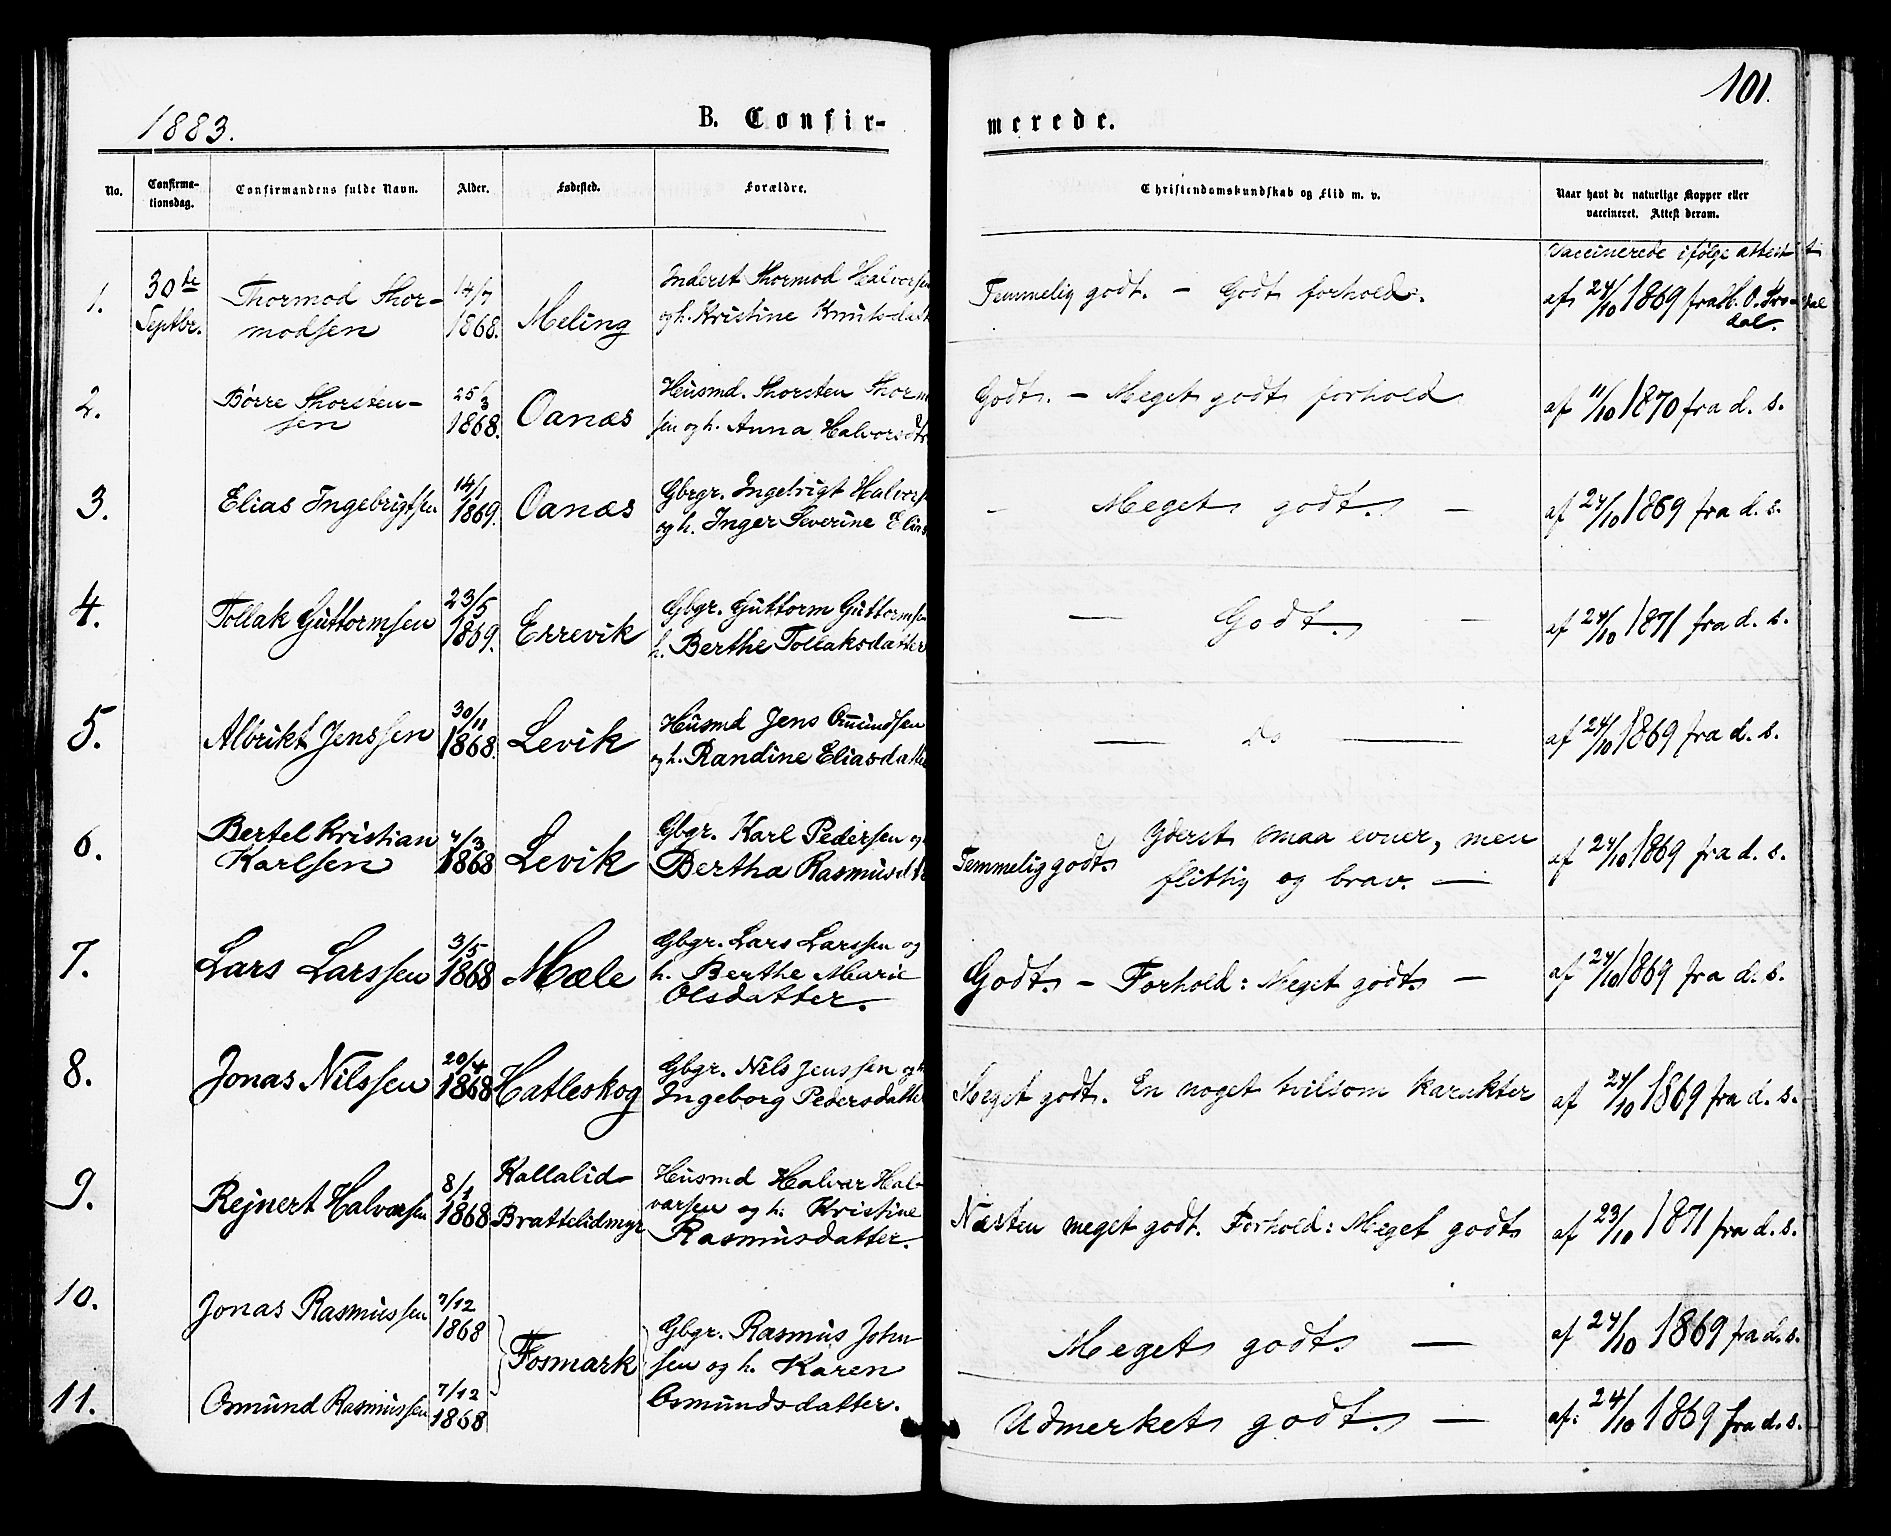 101.
1883.
B. Confir-
merede.
No.
Confirma-
tionsdag.
Confirmandens fulde Navn.
Alder.
Fødested.
Forældre.
Christendomskundskab og Flid m. v.
Naar havt de naturlige Kopper eller
vaccineret. Attest derom.
1.
30te
Septbr.
Thormod Thor-
modsen
14/7
1868.
Meling
Inderst Thormod Halvorsen
og h. Kristine Knutsdatt
Temmelig godt. - Godt forhold.
Vaccinerede ifølge attest
af 24/10 1869 fra
dal.
2.
Børre Thorsten-
sen
25/3
1868.
Oanæs
Husmd. Thorsten Thorm
sen og h. Anna Halvorsdtr
Godt. - Meget godt forhold
af 11/10 1870 fra d. s.
3.
Elias Ingebrigtsen
14/1
1869.
Oanæs
Gbrgr. Ingebrigt Halvors
og h. Inger Severine Elias
- Meget godt. -
af 24/10 1869 fra d. s.
4.
Tollak Guttormsen
23/5
1869.
Errevik
Gbgr. Guttorm Guttormsen
h. Berthe Tollaksdatter
- Godt. -
af 24/10 1871 fra d. s.
5.
Albrikt Jenssen
30/11
1868.
Levik
Husmd Jens Omundsen
og h. Randine Eliasdatte
- Do -
af 24/10 1869 fra d. s.
6.
Bertel Kristian
Karlsen
7/3
1868
Levik
Gbgr. Karl Pedersen og
Bertha Rasmusdtr
Temmelig godt. Yderst smaa evner, men
flittig og brav. -
af 24/10 1869 fra d. s.
7.
Lars Larssen
3/5
1868
Mæle
Gbgr. Lars Larssen og
h. Berthe Marie
Olsdatter.
Godt. - Forhold: Meget godt. -
af 24/10 1869 fra d. s.
8.
Jonas Nilssen
20/4
1868
Hatleskog
Gbgr. Nils Jenssen og h
Ingeborg Pedersdatte
Meget godt. En noget tvilsom karakter
af 24/10 1869 fra d. s.
9.
Rejnert Halvorsen
8/1
1868
Kallalid-
Brattelidmyr
Husmd Halvar Hal-
varsen og h. Kristine
Rasmusdatter.
Næsten meget godt. Forhold: Meget godt
af 23/10 1871 fra d. s.
10.
Jonas Rasmussen
7/12
1868
Fosmark
Gbgr. Rasmus John
sen og h. Karen
Osmundsdatter.
Meget godt -
af 24/10 1869 fra d. s.
11.
Osmund Rasmussen
7/12
1868
Udmerket godt. -
af: 24/10 1869 fra d. s.